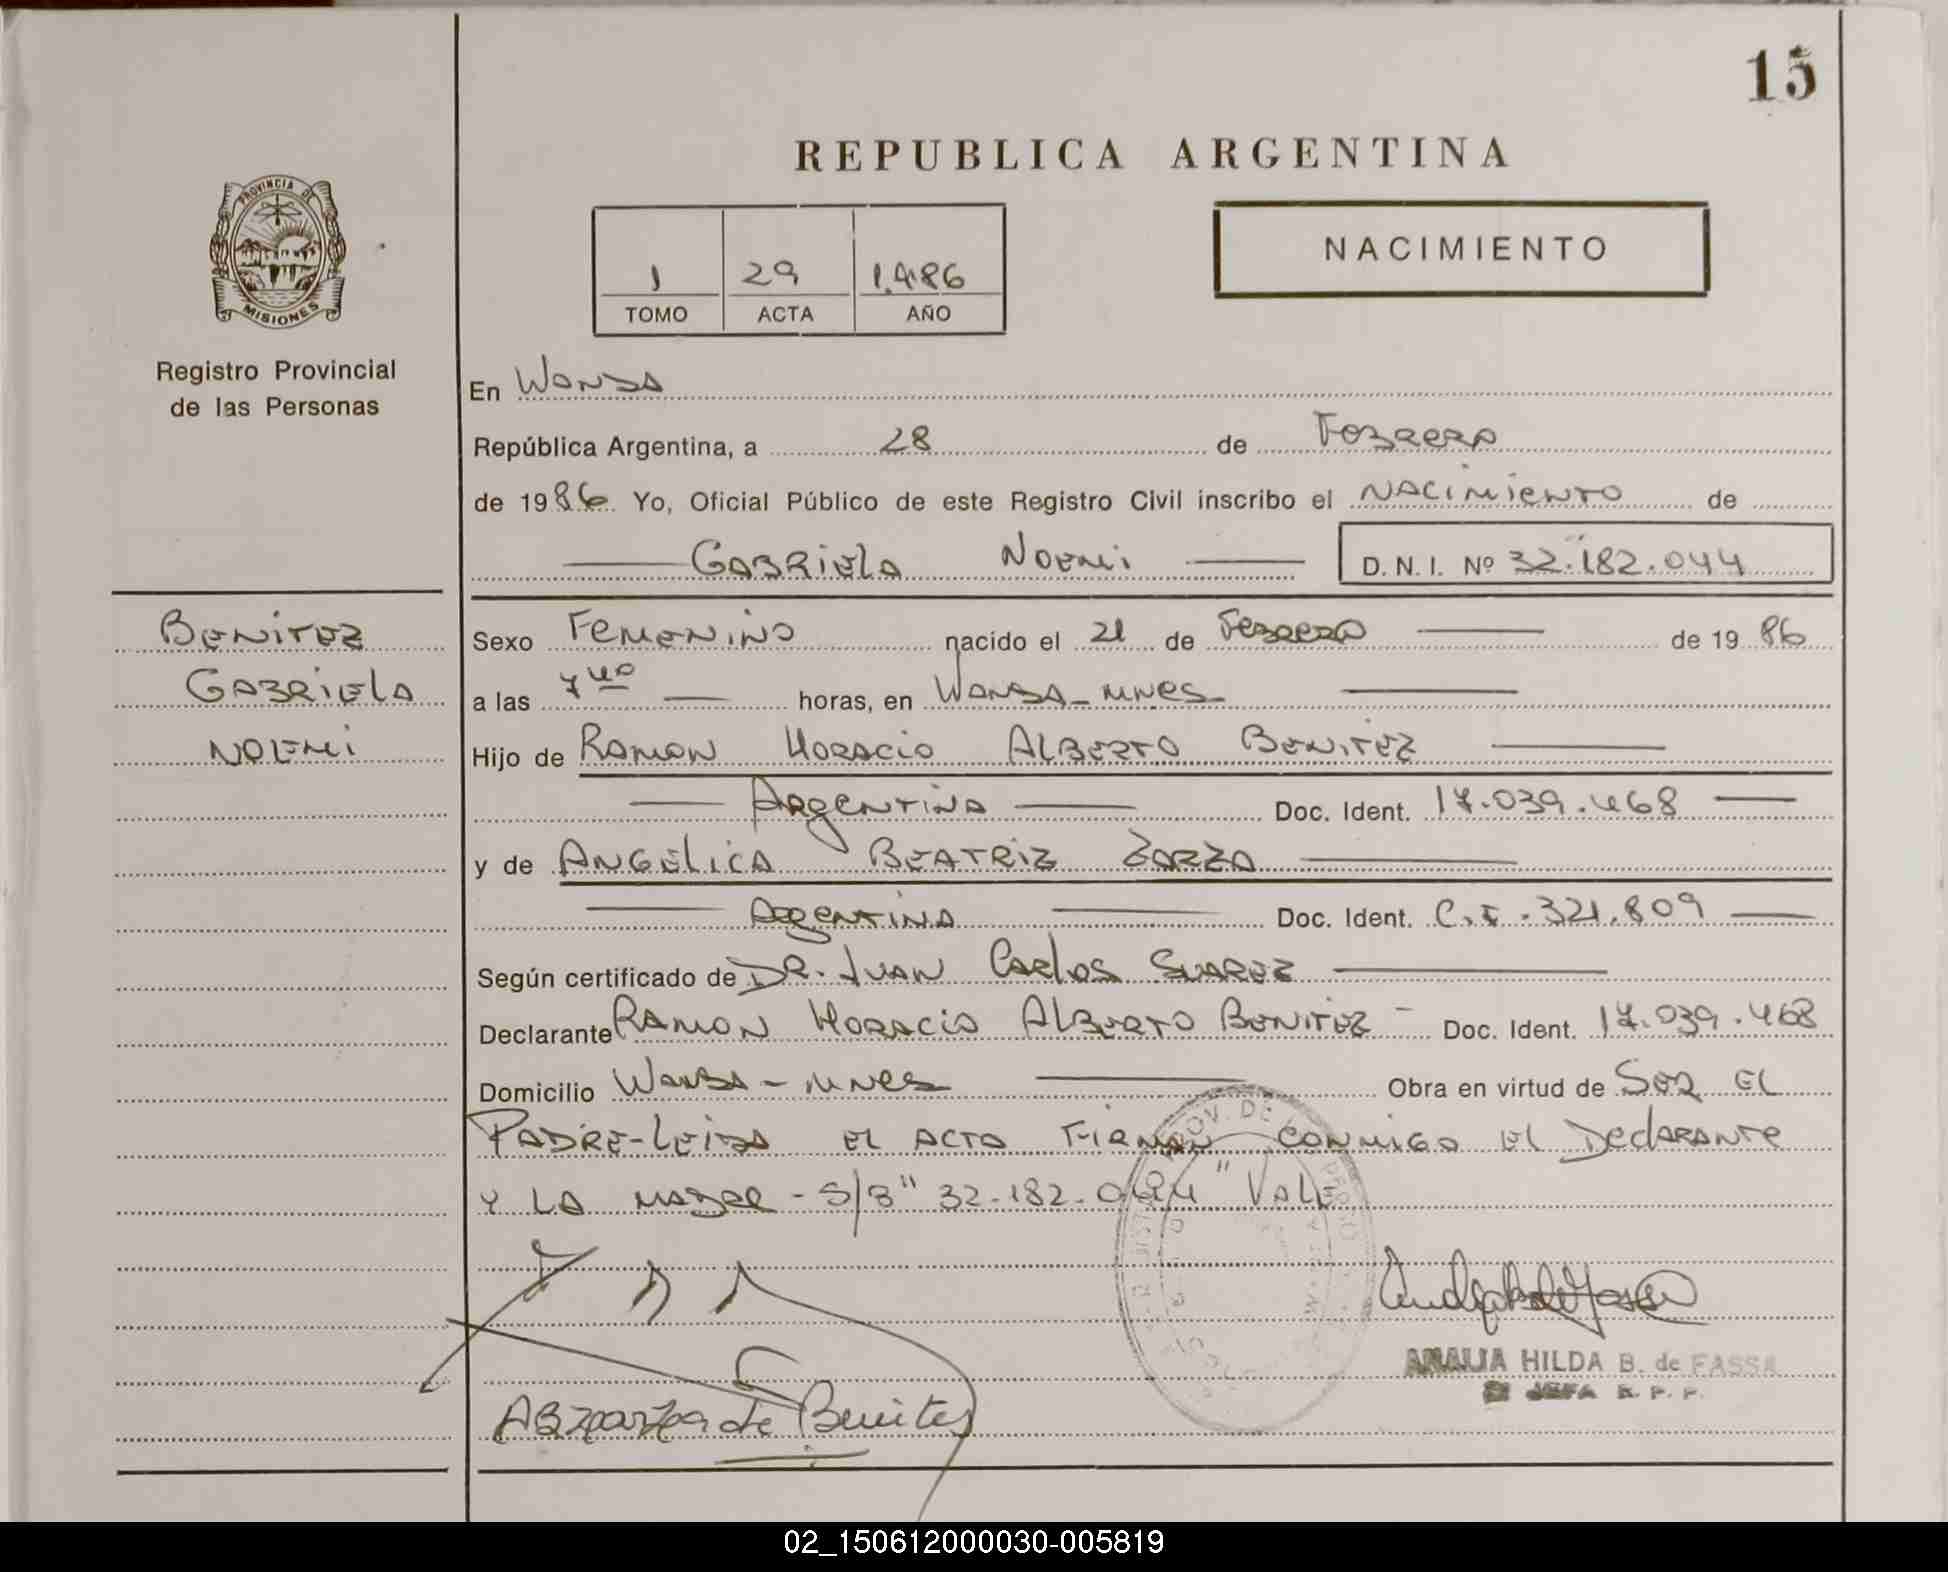 15
REPUBLICA ARGENTINA
PROVINCIA DE
MISIONES
Registro Provincial
de las Personas
1 29 1.986
TOMO ACTA AÑO
NACIMIENTO
En Wanda
República Argentina, a 28 de Febrero
de 1986 Yo, Oficial Público de este Registro Civil inscribo el NACIMIENTO de
GABRIELA NOEMI D. N. I. Nº 32.182.044
BENITEZ
GABRIELA
NOEMI
Sexo Femenino nacido el 21 de Febrero de 1986
a las horas, en Wanda - Mnes
Hijo de RAMON HORACIO ALBERTO BENITEZ
Argentina Doc. Ident. 17.039.468
y de ANGELICA BEATRIZ ZARZA
Argentina Doc. Ident. C.I. 321.809
Según certificado de DR. JUAN CARLOS SUAREZ
Declarante RAMON HORACIO ALBERTO BENITEZ - Doc. Ident. 17.039.468
Domicilio Wanda - Mnes Obra en virtud de SER EL
PADRE - LEIDA EL ACTA FIRMAN CONMIGO EL DECLARANTE
Y LA MADRE - S/B " 32.182.044 " Vale
de Benitez
ANALIA HILDA B. de FASSA
JEFA R. P. P.
02_150612000030-005819